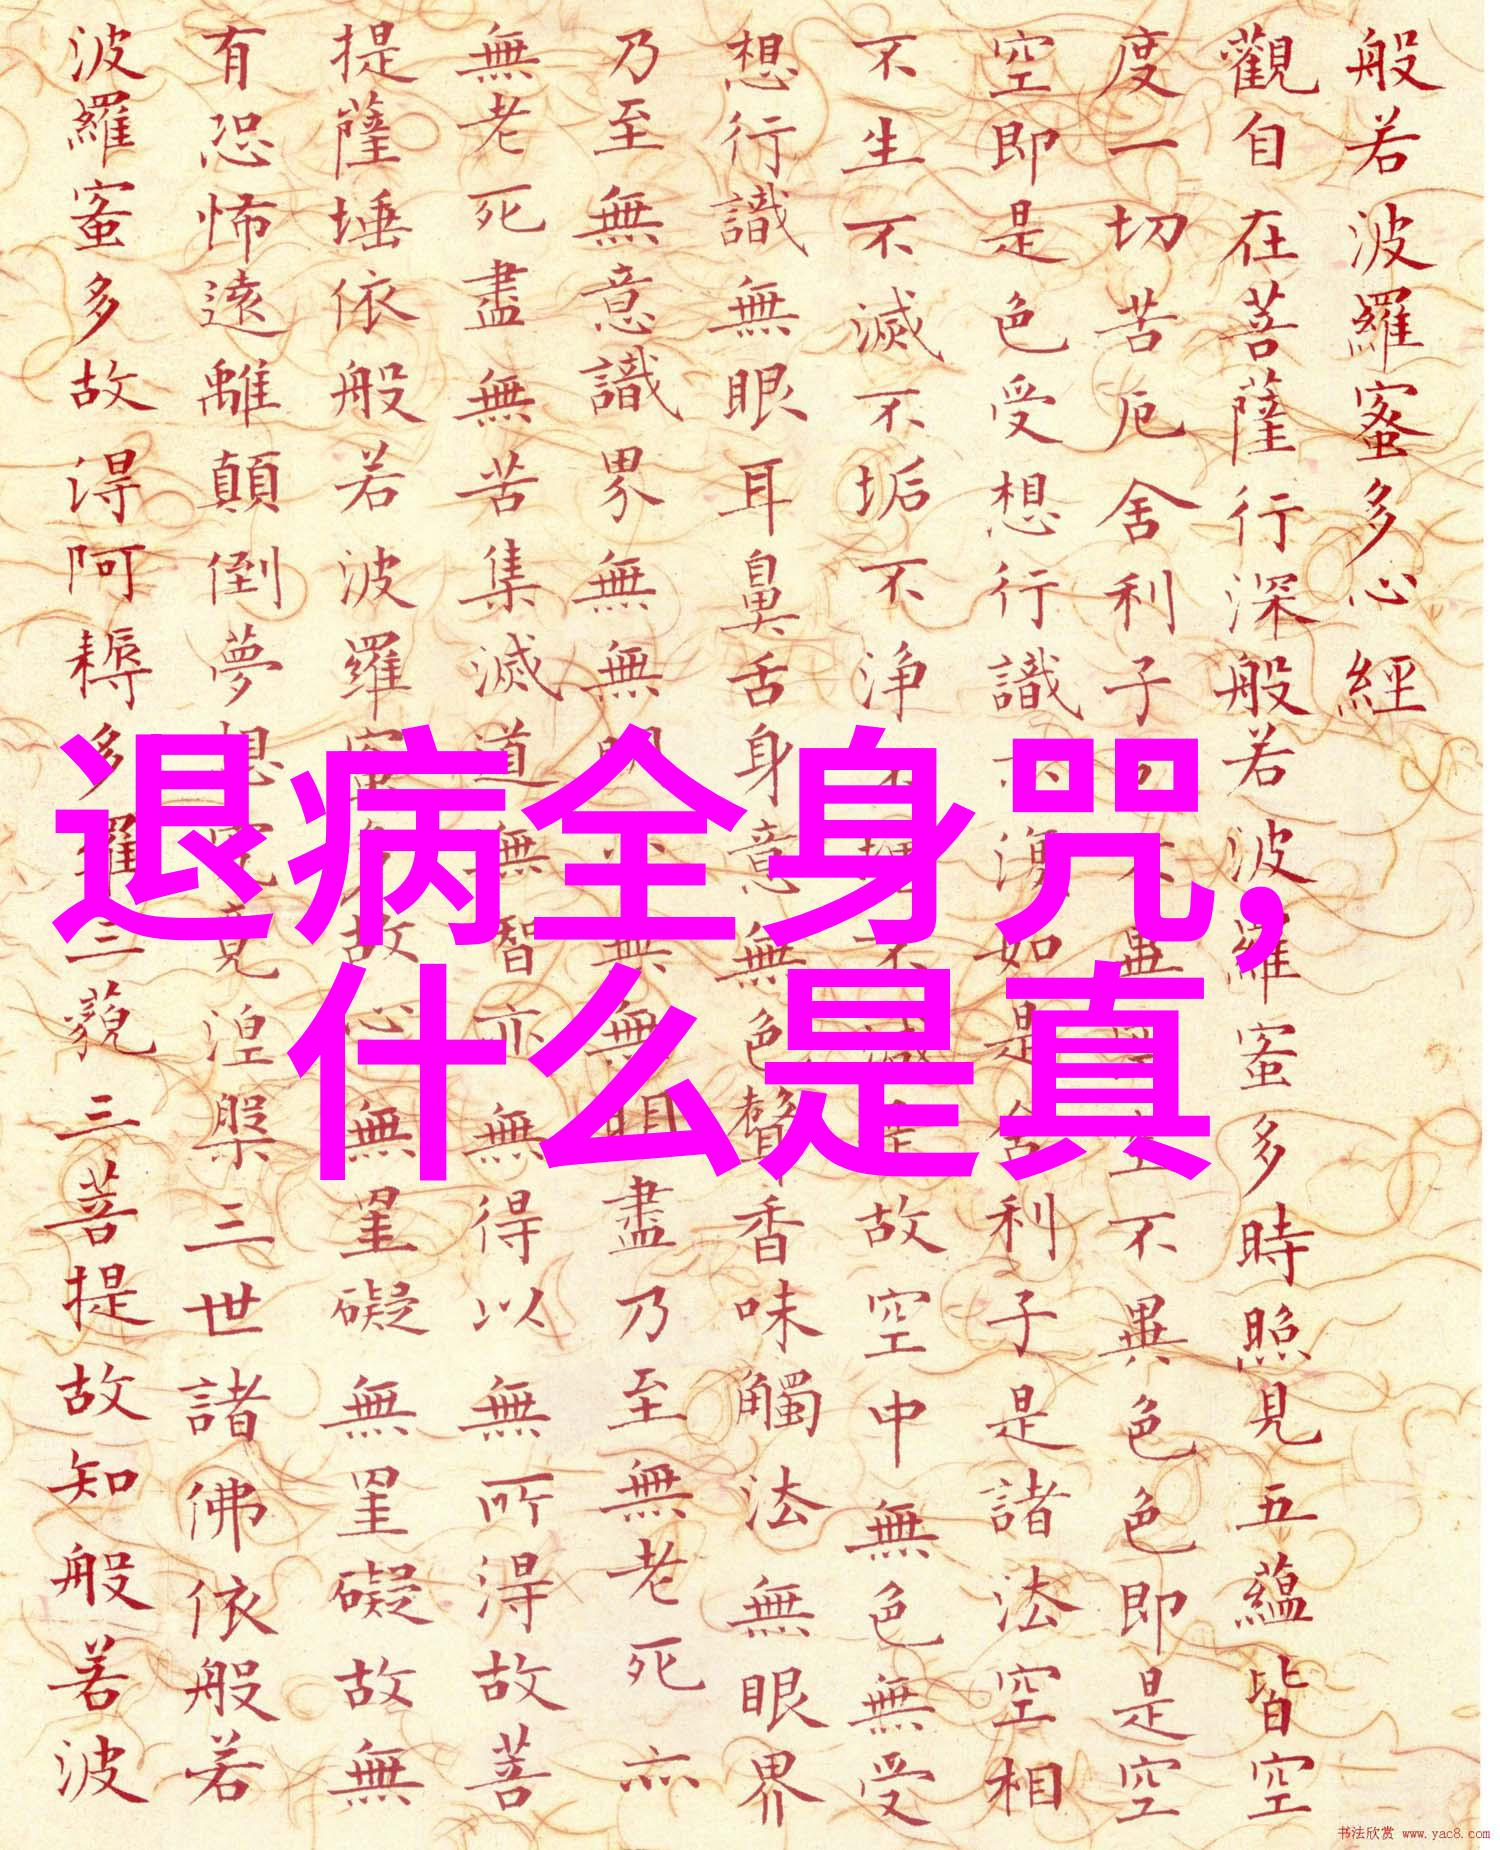 般若波羅蜜多心經
觀自在菩薩行深般若波羅蜜多時照見五蘊皆空
度一切苦厄舍利子不異空不異色色即是空
空即是色受想行識亦復如是舍利子是諸法空相
不生不滅不垢不淨不增不減是故空中無色無受
想行識無眼耳鼻舌身意無色聲香味觸法無眼界
乃至無意識界無無明亦無無明盡乃至無老死亦
無老死盡無苦集滅道無智亦無得以無所得故菩
提薩埵依般若波羅蜜多故心無罣礙無罣礙故無
有恐怖遠離顛倒夢想究竟涅槃三世諸佛依般若
波羅蜜多故得阿耨多羅三藐三菩提故知般若波
退病全身咒,
什么是真
书法欣赏 www.yac8.com